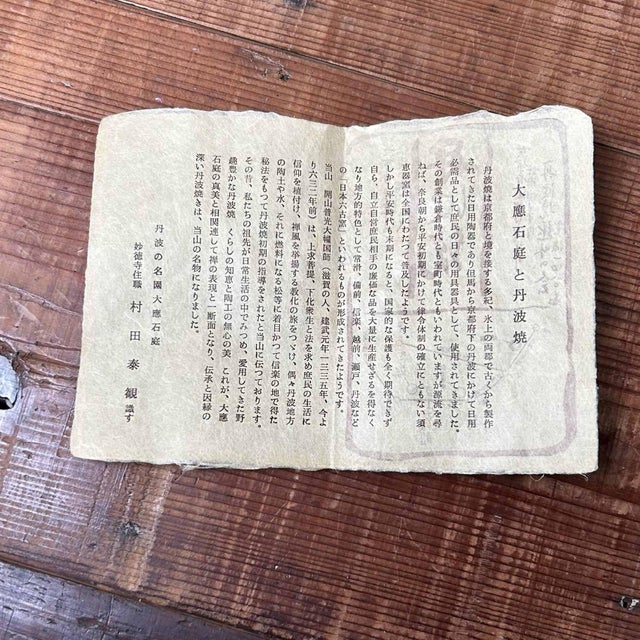 大應石庭と丹波焼
丹波焼は京都府と境を接する多紀、氷上の両郡で古くから製作
されてきた日用陶器であり但馬から京都府下の丹波にかけて日用
必需品として庶民の日々の用具器具として、使用されてきました。
その創業は鎌倉時代とも室町時代ともいわれていますが源流を尋
ねば、奈良朝から平安初期にかけて律令体制の確立にともない須
恵器窯は全国にわたつて普及したようです。
しかし平安時代も末期になると、国家的な保護も全く期待できず
自ら、自立自営庶民相手の廉価な品を大量に生産せざるを得なく
なり地方的特色として常滑、備前、信楽、越前、瀬戸、丹波など
の「日本六古窯」といわれるものが形成されてきたようです。
当山、開山普光大幢国師(滋賀の人、建武元年一三三五年、今よ
り六三二年前)は、上求菩提、下化衆生と法を求め庶民の生活に
信仰を植付け、禅風を挙揚する教化の旅をつづけ、偶々丹波地方
の陶土や水、それに燃料になる松等に着目かつて信楽の地で得た
秘法をもつて丹波焼初期の指導をされたと当山に伝つております。
その昔、私たちの祖先が日常生活の中でみつめ、愛用してきた野
趣豊かな丹波焼 くらしの知恵と陶工の無心の美 これが、大應
石庭の真美と相関連して禅の表現と一断面となり、伝承と因縁の
深い丹波焼きは、当山の名物になりました。
丹波の名園大應石庭
妙徳寺住職 村田泰観 識す